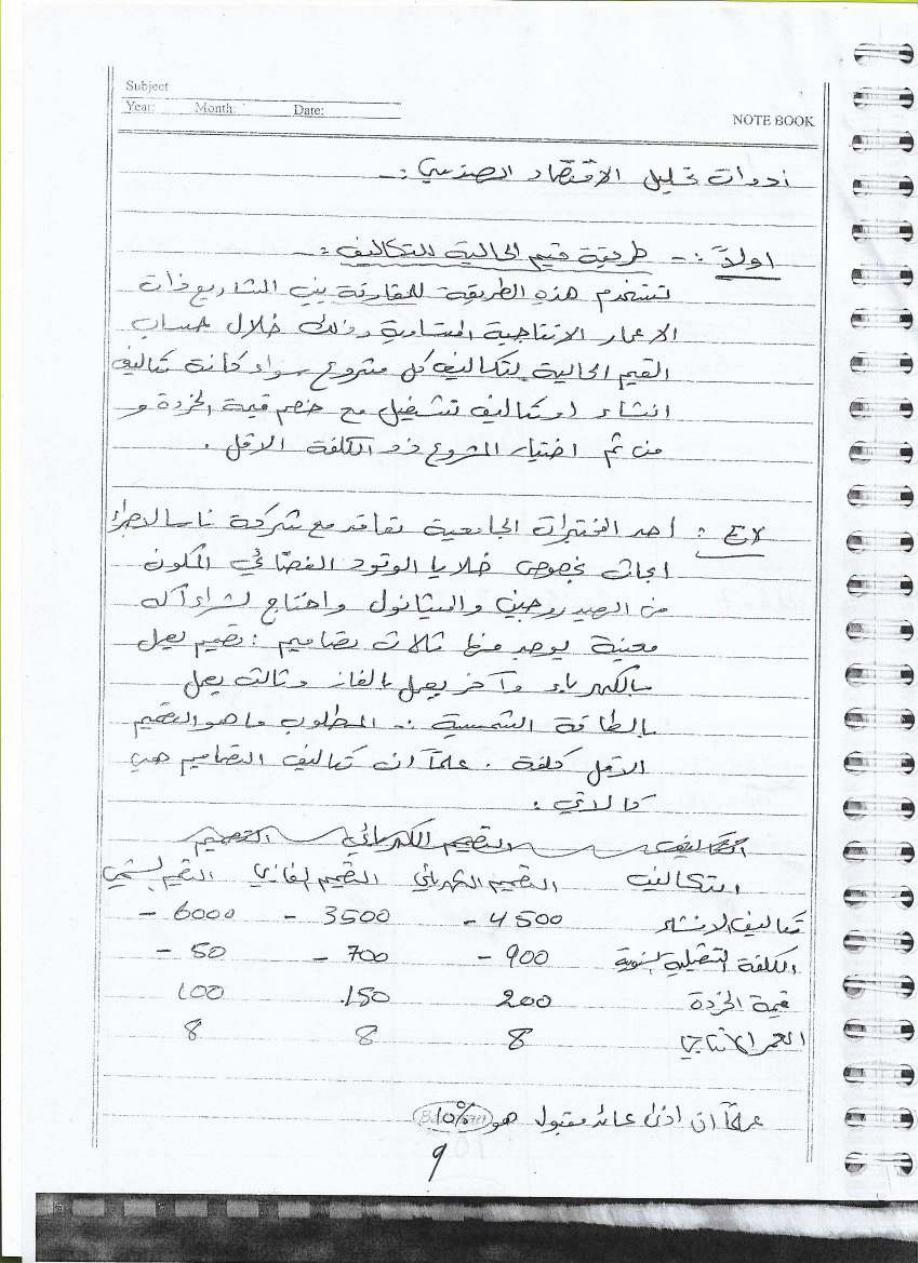 Subject
Year: Month: Date:
NOTE BOOK
ادوات تحليل الاقتصاد الهندسي :-
اولاً :- طريقة قيم الحالية للتكاليف :-
تستخدم هذه الطريقة للمقارنة بين المشاريع ذات
الاعمار الانتاجية المتساوية وذلك خلال حساب
القيم الحالية لتكاليف كل مشروع سواء كانة تكاليف
انشاء او تكاليف تشغيل مع خصم قيمة الخردة و
من ثم اختيار المشروع ذو الكلفة الاقل .
EX : احد المختبرات الجامعية تعاقد مع شركة ناسا لاجراء
ابحاث بخصوص خلايا الوقود الفضائي المكون
من الهيدروجين والميثانول واحتاج لشراء آله
معينة يوجد منها ثلاث تصاميم : تصميم يعمل
بالكهرباء وآخر يعمل بالغاز وثالث يعمل
بالطاقة الشمسية :- المطلوب ما هو التصميم
الاقل كلفة . علماً ان تكاليف التصاميم هي
كالاتي :
التكاليف التصميم الكهربائي التصميم
التكاليف التصميم الكهربائي التصميم الغازي التصميم الشمسي
تكاليف الانشاء 4500 - 3500 - 6000 -
الكلفة التشغيلية السنوية 900 - 700 - 50 -
قيمة الخردة 200 150 100
العمر الانتاجي 8 8 8
علماً ان ادنى عائد مقبول هو 10%
9